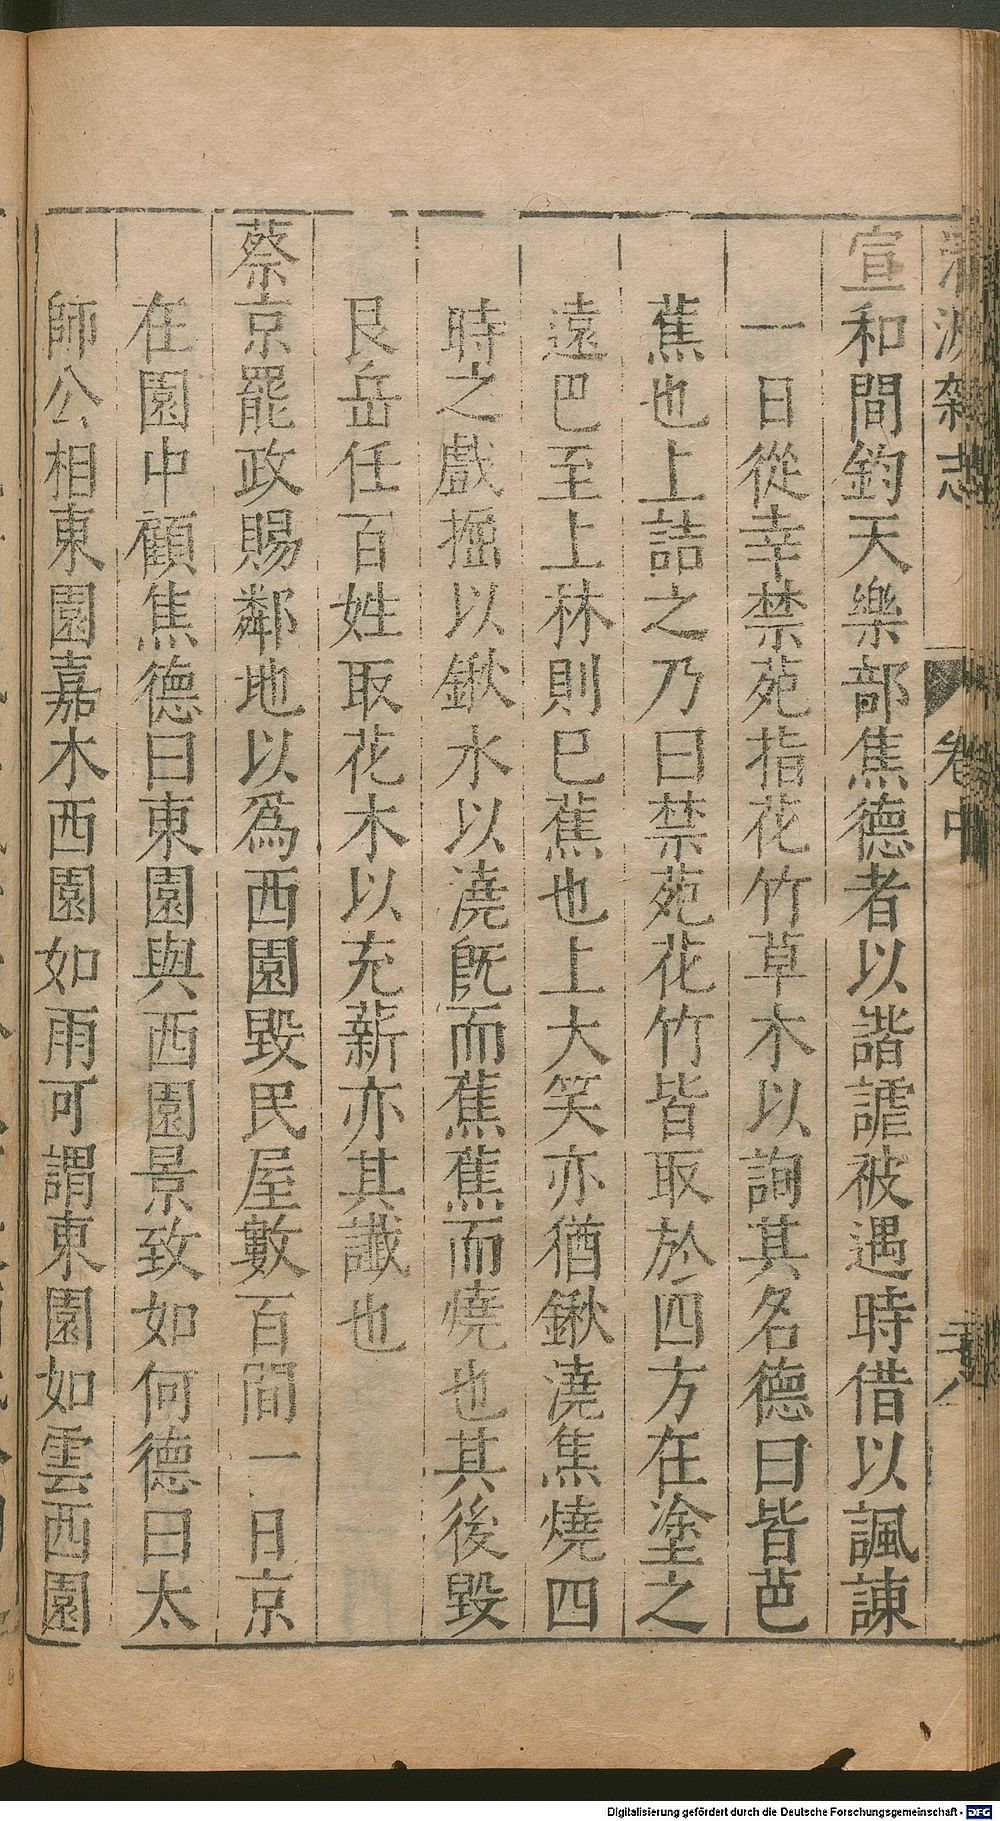 清波雜志
卷中
宣和間鈞天樂部焦德者以諧謔被遇時借以諷諫
一日從幸禁苑指花竹草木以詢其名德曰皆芭
蕉也上詰之乃曰禁苑花竹皆取於四方在塗之
遠巴至上林則巳蕉也上大笑亦猶鍬澆焦燒四
時之戲掘以鍬水以澆旣而蕉蕉而燒也其後毀
艮岳任百姓取花木以充薪亦其讖也
蔡京罷政賜鄰地以爲西園毀民屋數百間一日京
在園中顧焦德曰東園與西園景致如何德曰太
師公相東園嘉木西園如雨可謂東園如雲西園
Digitalisierung gefördert durch die Deutsche Forschungsgemeinschaft - DFG